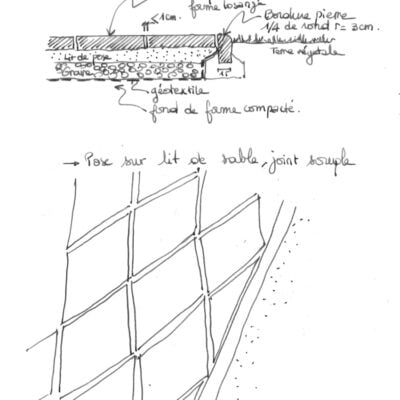 forme losange
≤1cm.
Bordure pierre
1/4 de rond r= 3cm.
Terre végétale
Lit de pose
Grave
15
géotextile
fond de forme compacté.
→ Pose sur lit de sable, joint souple